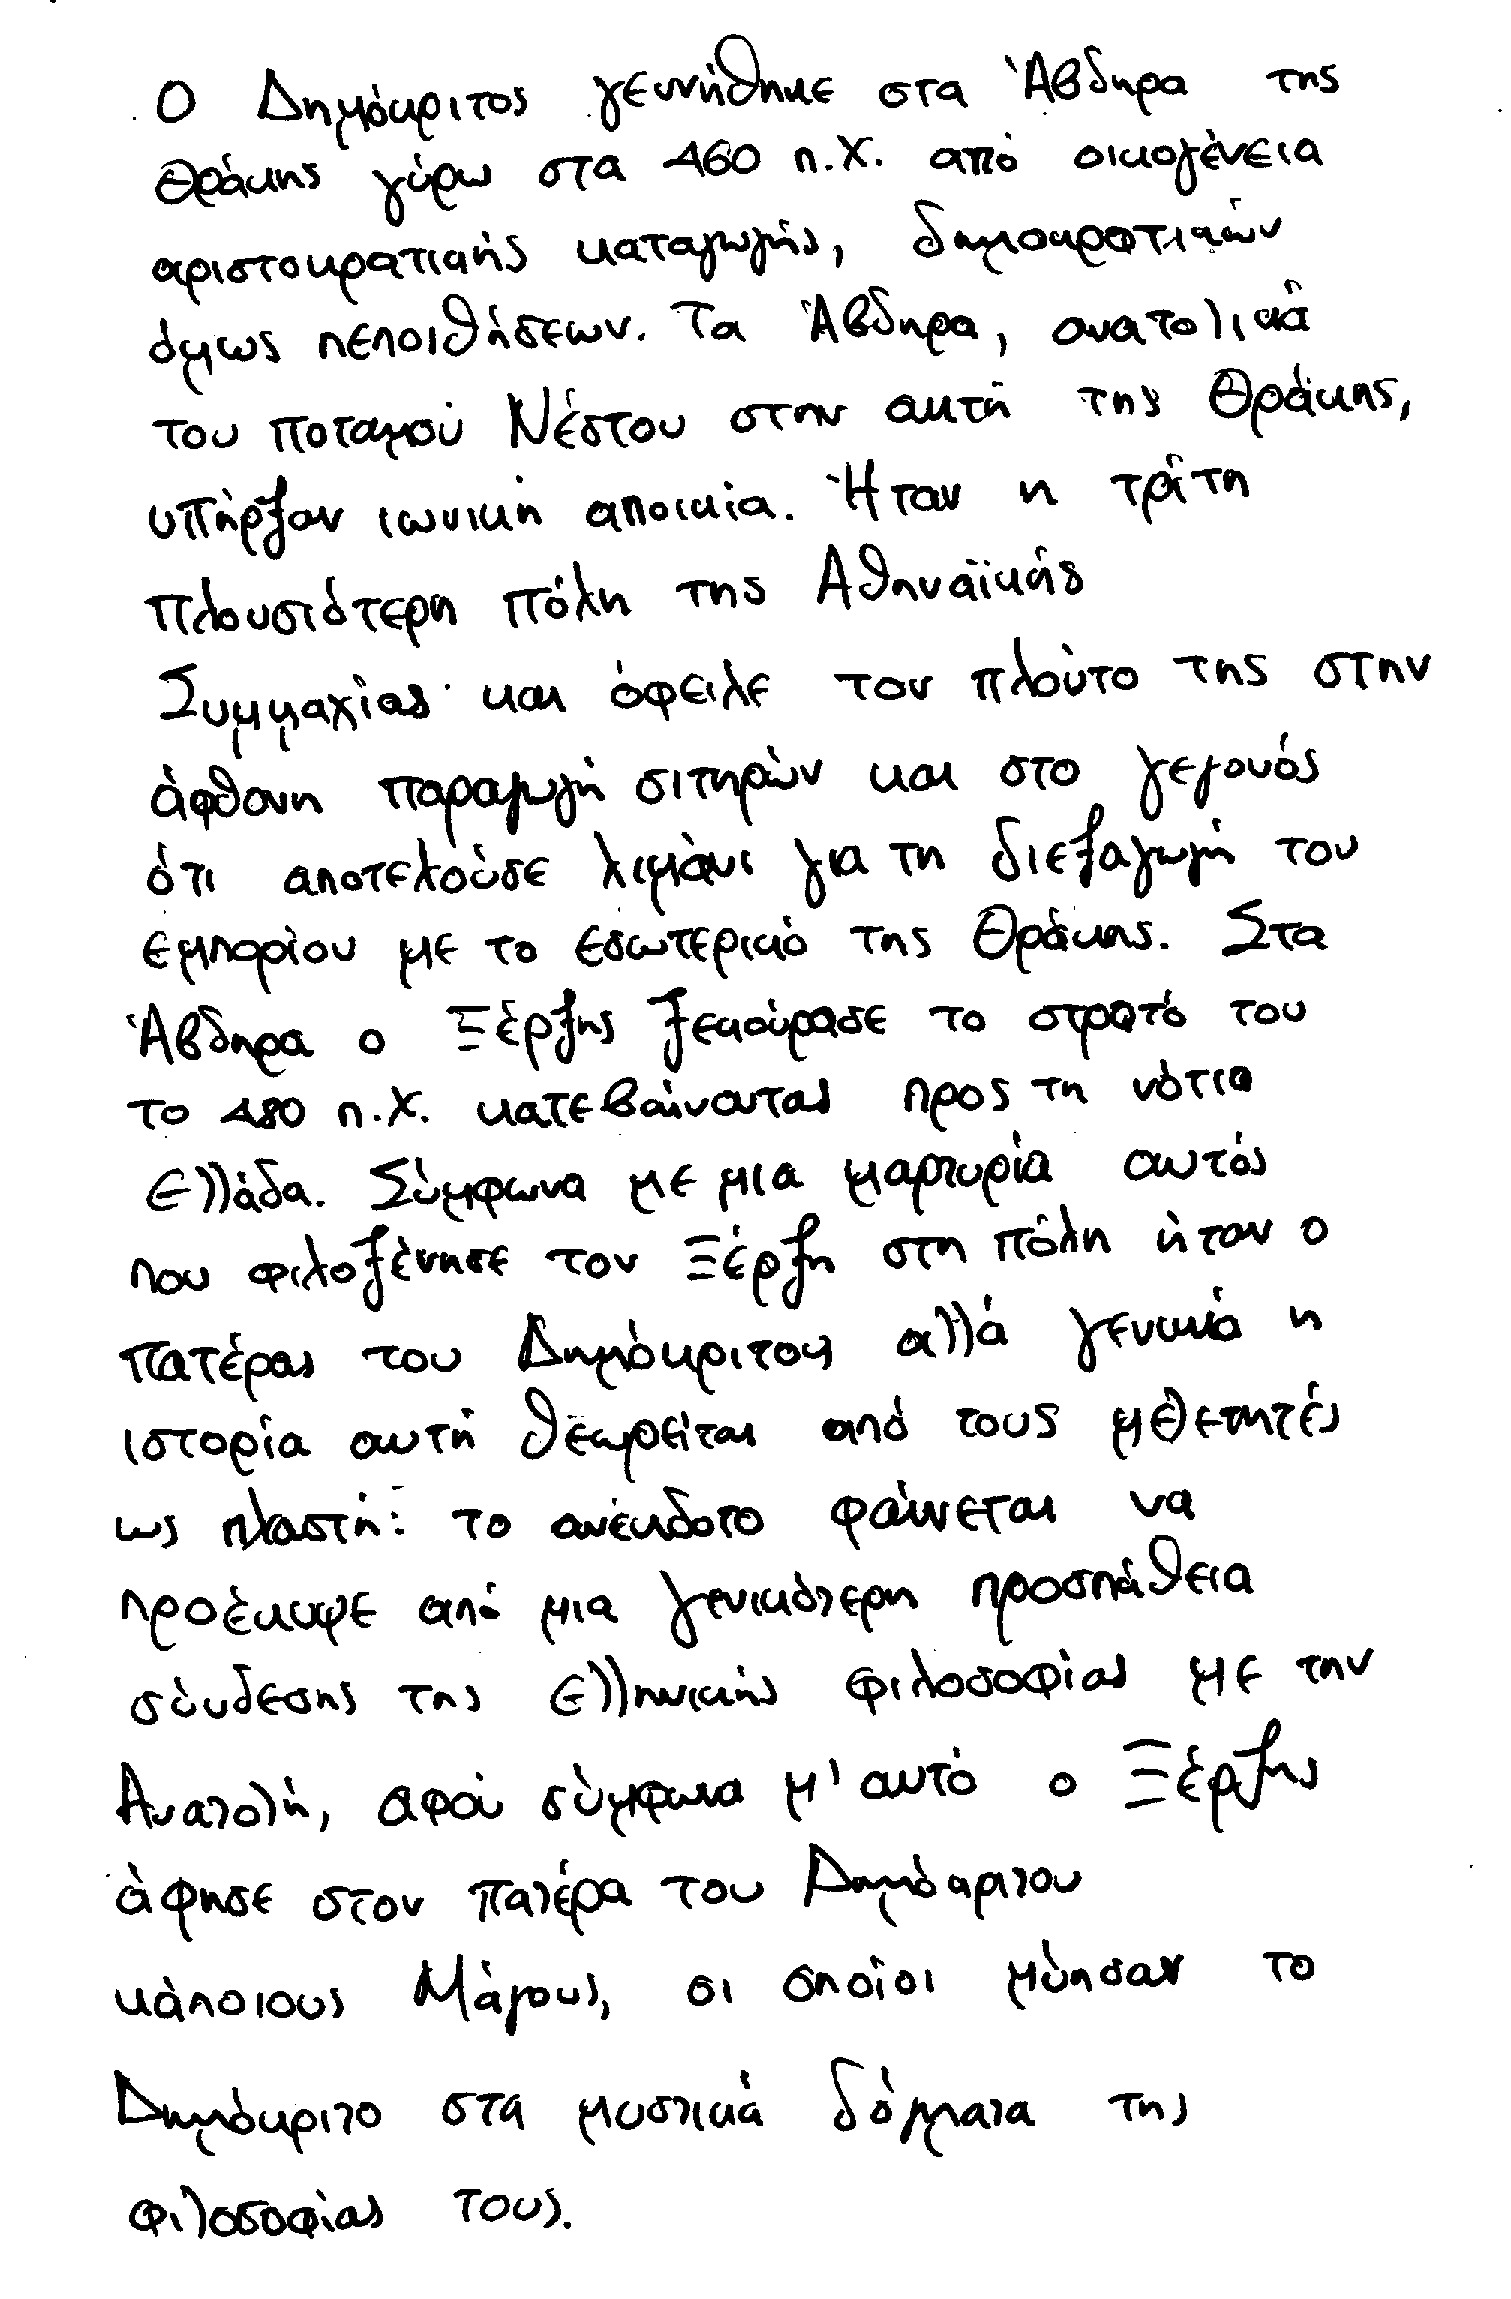 Ο Δημόκριτος γεννήθηκε στα Άβδηρα της
Θράκης γύρω στα 460 π.Χ. από οικογένεια
αριστοκρατικής καταγωγής, δημοκρατικών
όμως πεποιθήσεων. Τα Άβδηρα, ανατολικά
του ποταμού Νέστου στην ακτή της Θράκης,
υπήρξαν ιωνική αποικία. Ήταν η τρίτη
πλουσιότερη πόλη της Αθηναϊκής
Συμμαχίας και όφειλε τον πλούτο της στην
άφθονη παραγωγή σιτηρών και στο γεγονός
ότι αποτελούσε λιμάνι για τη διεξαγωγή του
εμπορίου με το εσωτερικό της Θράκης. Στα
Άβδηρα ο Ξέρξης ξεκούρασε το στρατό του
το 480 π.Χ. κατεβαίνοντας προς τη νότια
Ελλάδα. Σύμφωνα με μια μαρτυρία αυτός
που φιλοξένησε τον Ξέρξη στη πόλη ήταν ο
πατέρας του Δημόκριτου αλλά γενικά η
ιστορία αυτή θεωρείται από τους
ως πλαστή: το ανέκδοτο φαίνεται να
προέκυψε από μια γενικότερη προσπάθεια
σύνδεσης της Ελληνικής φιλοσοφίας με την
Ανατολή, αφού σύμφωνα μ' αυτό ο Ξέρξης
άφησε στον πατέρα του Δημόκριτου
κάποιους Μάγους, οι οποίοι μύησαν το
Δημόκριτο στα μυστικά δόγματα της
φιλοσοφίας τους.